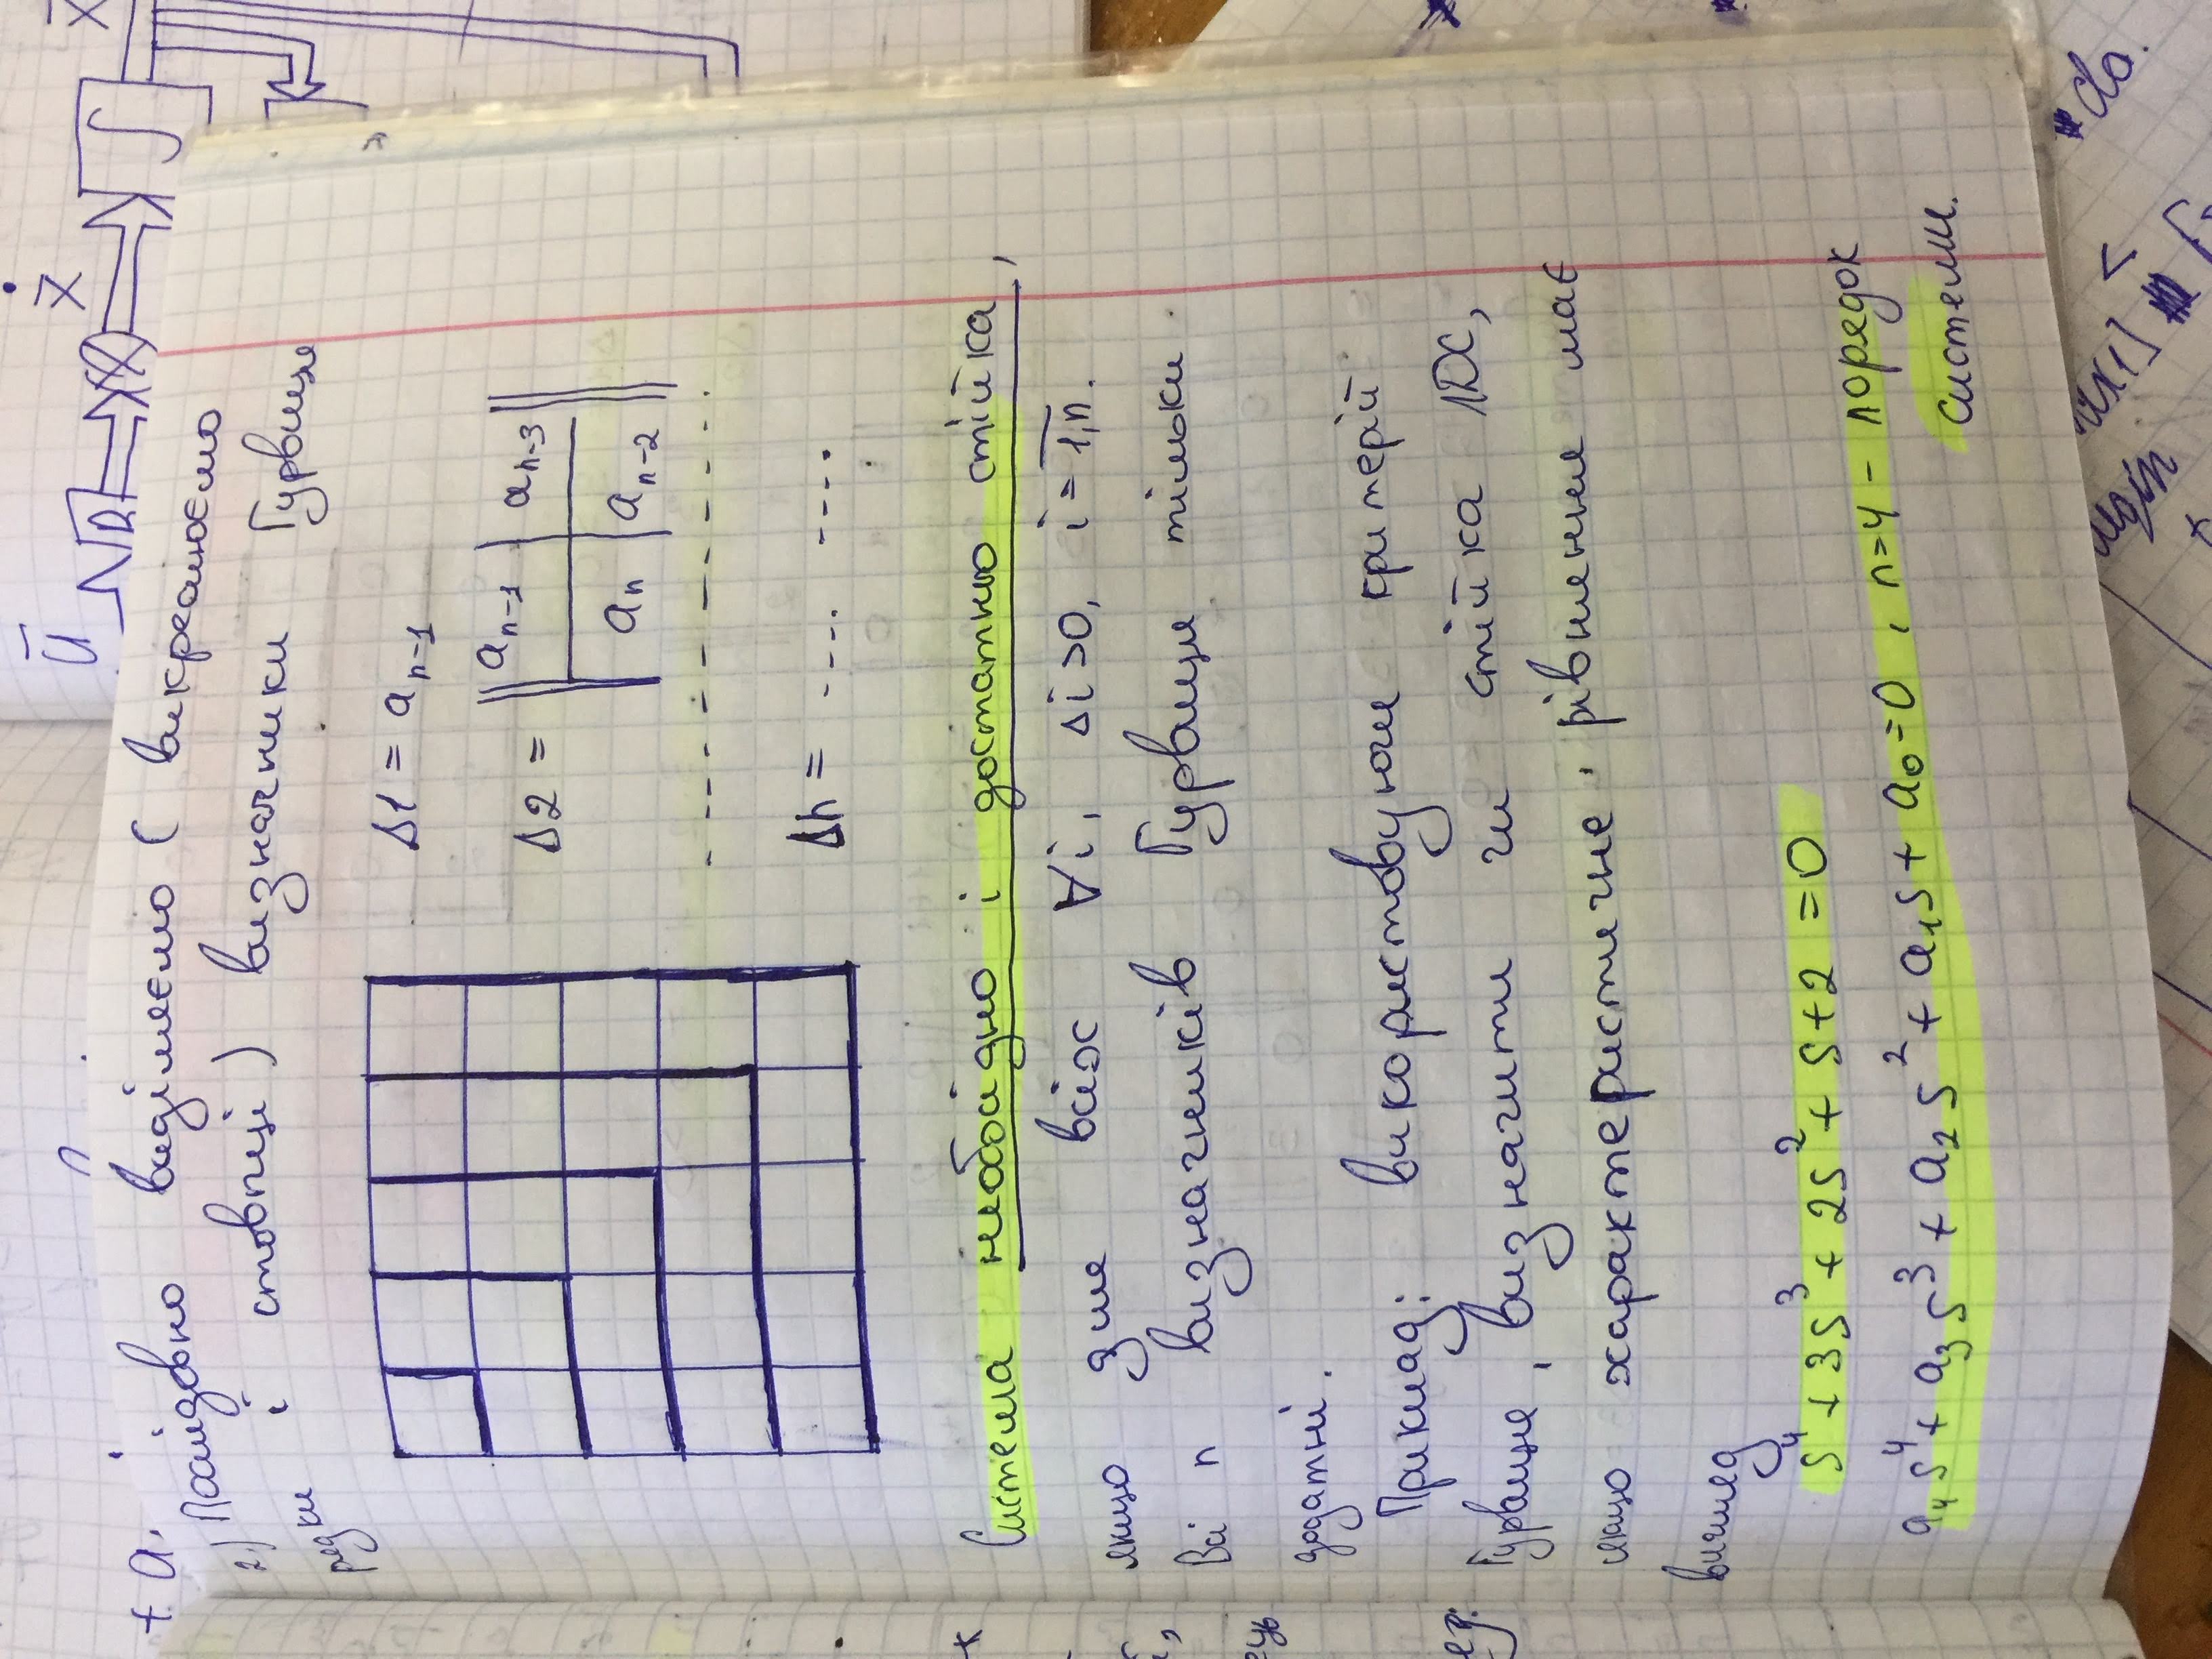 + a.
2.) Послідовно виділяємо ( викреслюємо
рядки і стовпці) визначники Гурвіця
Δ1 = a n-1
Δ2 = || a n-1 | a n-3 ||
a n | a n-2
- - - - - - - - - - -
Δn = .... ....
Система необхідно і достатньо стійка,
якщо для всіх ∀i, Δi>0, i = 1,n.
Всі n визначників Гурвіця тільки
додатні.
Приклад: використовуючи критерій
Гурвіця, визначити чи стійка ЛДС,
якщо характеристичне рівняння має
вигляд
s⁴ + 3s³ + 2s² + s + 2 = 0
a₄s⁴ + a₃s³ + a₂s² + a₁s + a₀ = 0 , n=4 - порядок
системи.
U
X
X
∫